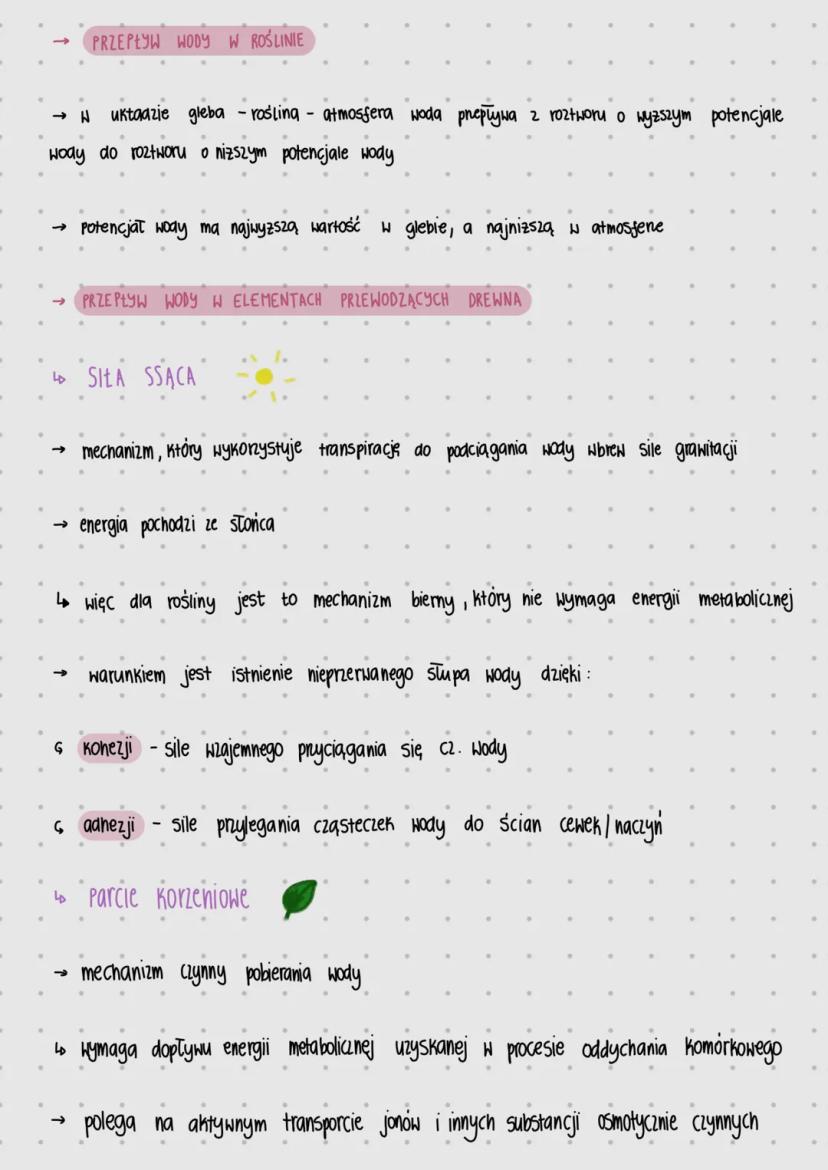 → PRZEPŁYW WODY W ROŚLINIE
→ W układzie gleba - roślina - atmosfera woda przepływa z roztworu o wyższym potencjale
wody do roztworu o niższym potencjale wody
→ potencjał wody ma najwyższą wartość w glebie, a najniższą w atmosferze
→ PRZEPŁYW WODY W ELEMENTACH PRZEWODZĄCYCH DREWNA
↳ SIŁA SSĄCA
→ mechanizm, który wykorzystuje transpirację do podciągania wody wbrew sile grawitacji
→ energia pochodzi ze słońca
↳ więc dla rośliny jest to mechanizm bierny, który nie wymaga energii metabolicznej
→ warunkiem jest istnienie nieprzerwanego słupa wody dzięki:
↳ kohezji - sile wzajemnego przyciągania się cz. wody
↳ adhezji - sile przylegania cząsteczek wody do ścian cewek/naczyń
↳ parcie korzeniowe
→ mechanizm czynny pobierania wody
↳ wymaga dopływu energii metabolicznej uzyskanej w procesie oddychania komórkowego
→ polega na aktywnym transporcie jonów i innych substancji osmotycznie czynnych